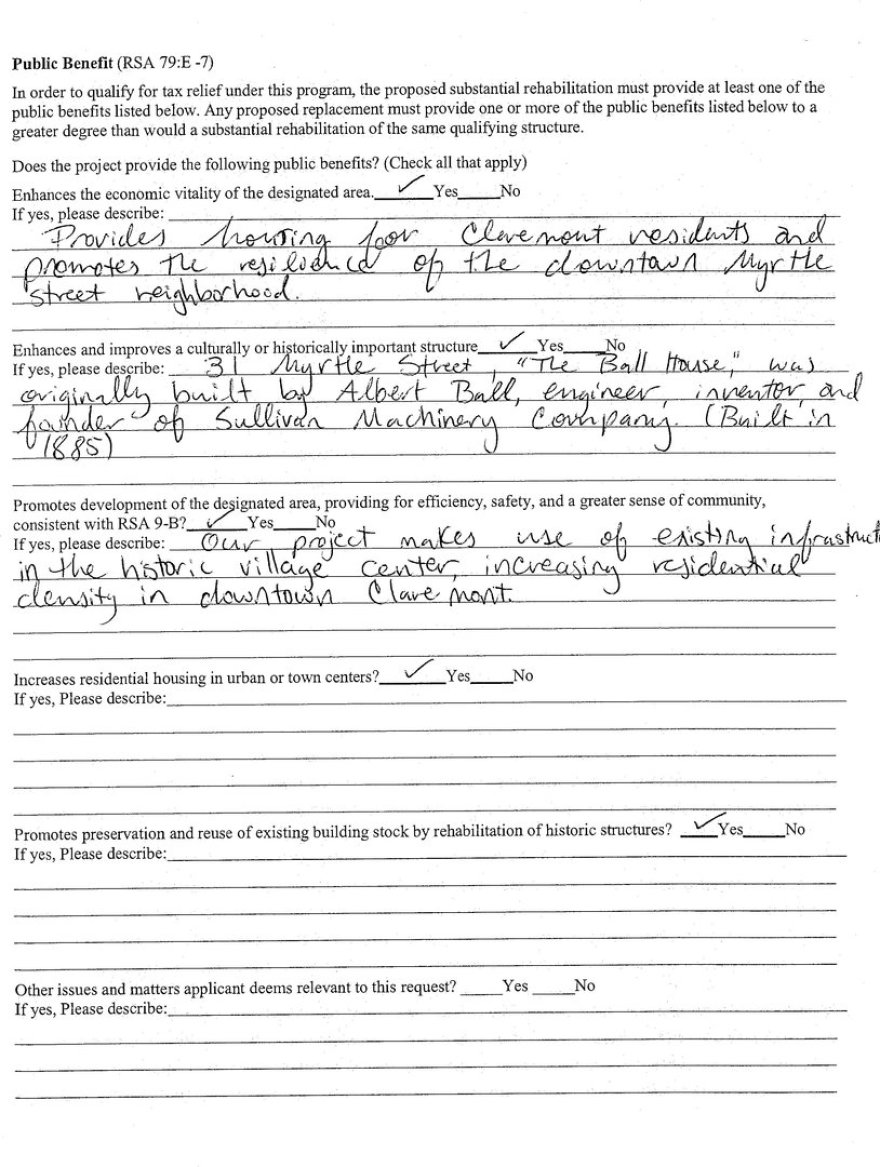 Public Benefit (RSA 79:E -7)
In order to qualify for tax relief under this program, the proposed substantial rehabilitation must provide at least one of the
public benefits listed below. Any proposed replacement must provide one or more of the public benefits listed below to a
greater degree than would a substantial rehabilitation of the same qualifying structure.
Does the project provide the following public benefits? (Check all that apply)
Enhances the economic vitality of the designated area. ✓ Yes____No
If yes, please describe:
Provides housing for Claremont residents and
promotes the resilience of the downtown Myrtle
street neighborhood.
Enhances and improves a culturally or historically important structure ✓ Yes____No
If yes, please describe: 31 Myrtle Street, "The Ball House," was
originally built by Albert Ball, engineer, inventor, and
founder of Sullivan Machinery Company. (Built in
1885)
Promotes development of the designated area, providing for efficiency, safety, and a greater sense of community,
consistent with RSA 9-B? ✓ Yes____No
If yes, please describe: Our project makes use of existing infrastruct
in the historic village center, increasing residential
density in downtown Claremont.
Increases residential housing in urban or town centers? ✓ Yes____No
If yes, Please describe:
Promotes preservation and reuse of existing building stock by rehabilitation of historic structures? ✓ Yes____No
If yes, Please describe:
Other issues and matters applicant deems relevant to this request? ____Yes ____No
If yes, Please describe: